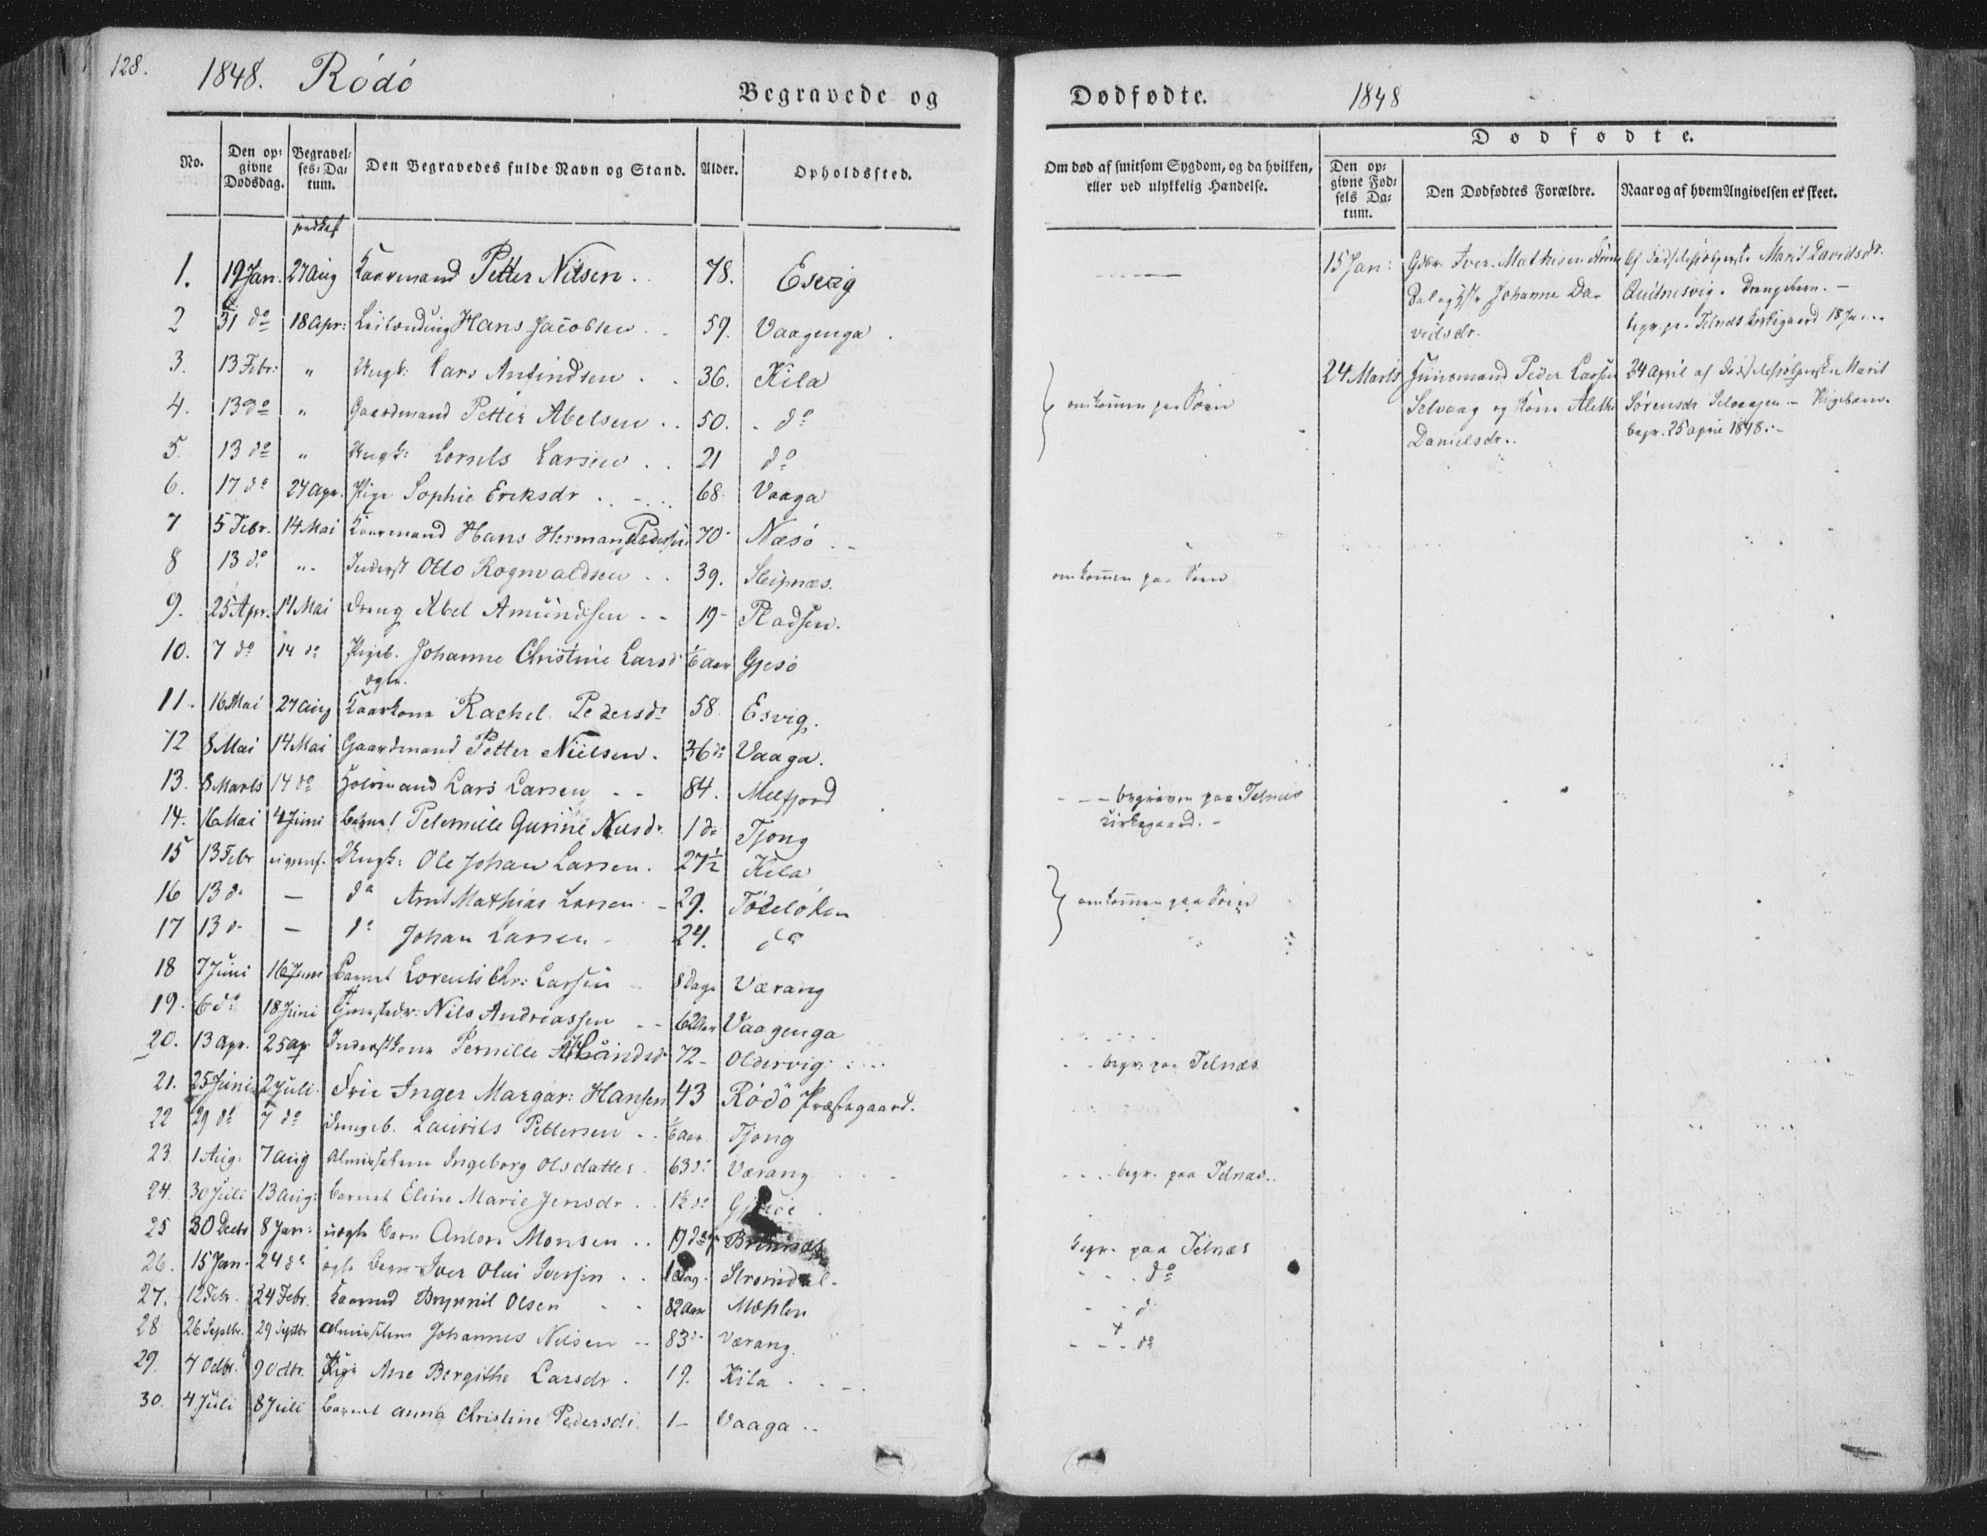 128.
1848. Rödö
Begravede og
Dødfødte.
1848
No.
Den op-
givne
Dødsdag.
Begravel-
ses-Da-
tum.
Den Begravedes fulde Navn og Stand.
Alder.
Opholdssted.
Om død af smitsom Sygdom, og da hvilken,
eller ved ulykkelig Hændelse.
Dødfødte.
Den op-
givne Fød-
sels Da-
tum.
Den Dødfødtes Forældre.
Naar og af hvem Angivelsen er skeet.
1. 19 Jan. 27 Aug Kaarmand Petter Nilsen. 78. Esvig
2 31 do 18 Apr: Leilænding Hans Jacobsen 59. Vaagenga
3. 13 Febr: " Ungk: Lars Anfindsen 36. Kila
4. 13 do " Gaardmand Petter Abelsen 50. do
5. 13 do " Ungk: Larsen 21 do
6. 17 do 24 Apr. Pige Sophie Ericksdr 68. Vaaga
7 5 Febr. 14 Mai Kaarmand Hans Herman Pedersen 70 Næsö
8 13 do " Inderst Otto Rognvaldsen 39. Sleipnæs.
9. 25 Apr. 14 Mai Dreng Abel Amundsen 19 Pladsen.
10. 7 do 14 do Pigeb. Johanne Christine Larsd ½ Aar Gjesö
ægte.
11. 16 Mai 27 Aug Kaarkone Rachel Pedersdr 58 Esvig.
12 8 Mai 14 Mai Gaardmand Petter Nielsen. 36 do Vaaga.
13. 8 Marts 14 do Lars Larsen 84. Melfjord
14. 16 Mai 4 Juni Barnet Petternille Gurine Nilsdr 1 do Tjong
15 13 Febr Ungk: Ole Johan Larsen. 27½ Kila
16 13 do — do Arnt Mathias Larsen 29. Födelöken
17 13 do — do Johan Larsen 24. do
18 7 Juni 16 Juni Barnet Lorents Chr: Larsen 8 Dage Værang
19. 6 do 18 Juni Nils Andreassen 62 Aar Vaagenga
20. 13 Apr. 25 Ap Inderstkone Pernille 72 Oldervig
21. 25 Juni 2 Juli Frue Inger Margar: Hansen 43 Rödö Præstegaard.
22 29 do 7 do Drengeb. Laurits Pettersen Aar Tjong
23. 1 Aug: 7 Aug Almisselem Ingeborg Olsdatter 63 do Værang
24. 30 Juli 13 Aug: Barnet Eline Marie Jensdr ½ do
25 30 Decbr 8 Jan: uægte Barn Anton Monsen
26. 15 Jan. 24 do ægte Barn Iver Olai Iversen Dag. Strømdal.
27. 12 Febr. 24 Febr. Kaarmd Brynnil Olsen 82 Aar
28 26 Septbr. 29 Septbr Almisselem Johannes Nilsen 83 do Værang.
29. 4 Octbr. 9 Octbr. Pige Ane Bergithe Larsdr. 19. Kila
30. 4 Juli 8 Juli Barnet Anna Christine Pedersdr 1 Vaaga
omkommen paa Søen
omkommen paa Søen
begraven paa Telnæs
Kirkegaard.
omkommen paa Søen
begr. paa Telnæs
begr. paa Telnæs.
begr. paa Telnæs
do
d
do
15 Jan:
Iver Mathisen
Johanne Da-
vidsdr.
Marit Davidsdr.
Qvitnesvig. Drengebarn.
begr. paa Telnæs Kirkegaard 18 Jan.
24 Marts
Huusmand Peder Larsen
Selvaag og Kone Alethe
Danielsdr.
24 April af Marit
Sørensdr Selvaagen - Pigebarn.
begr. 25 April 1848.